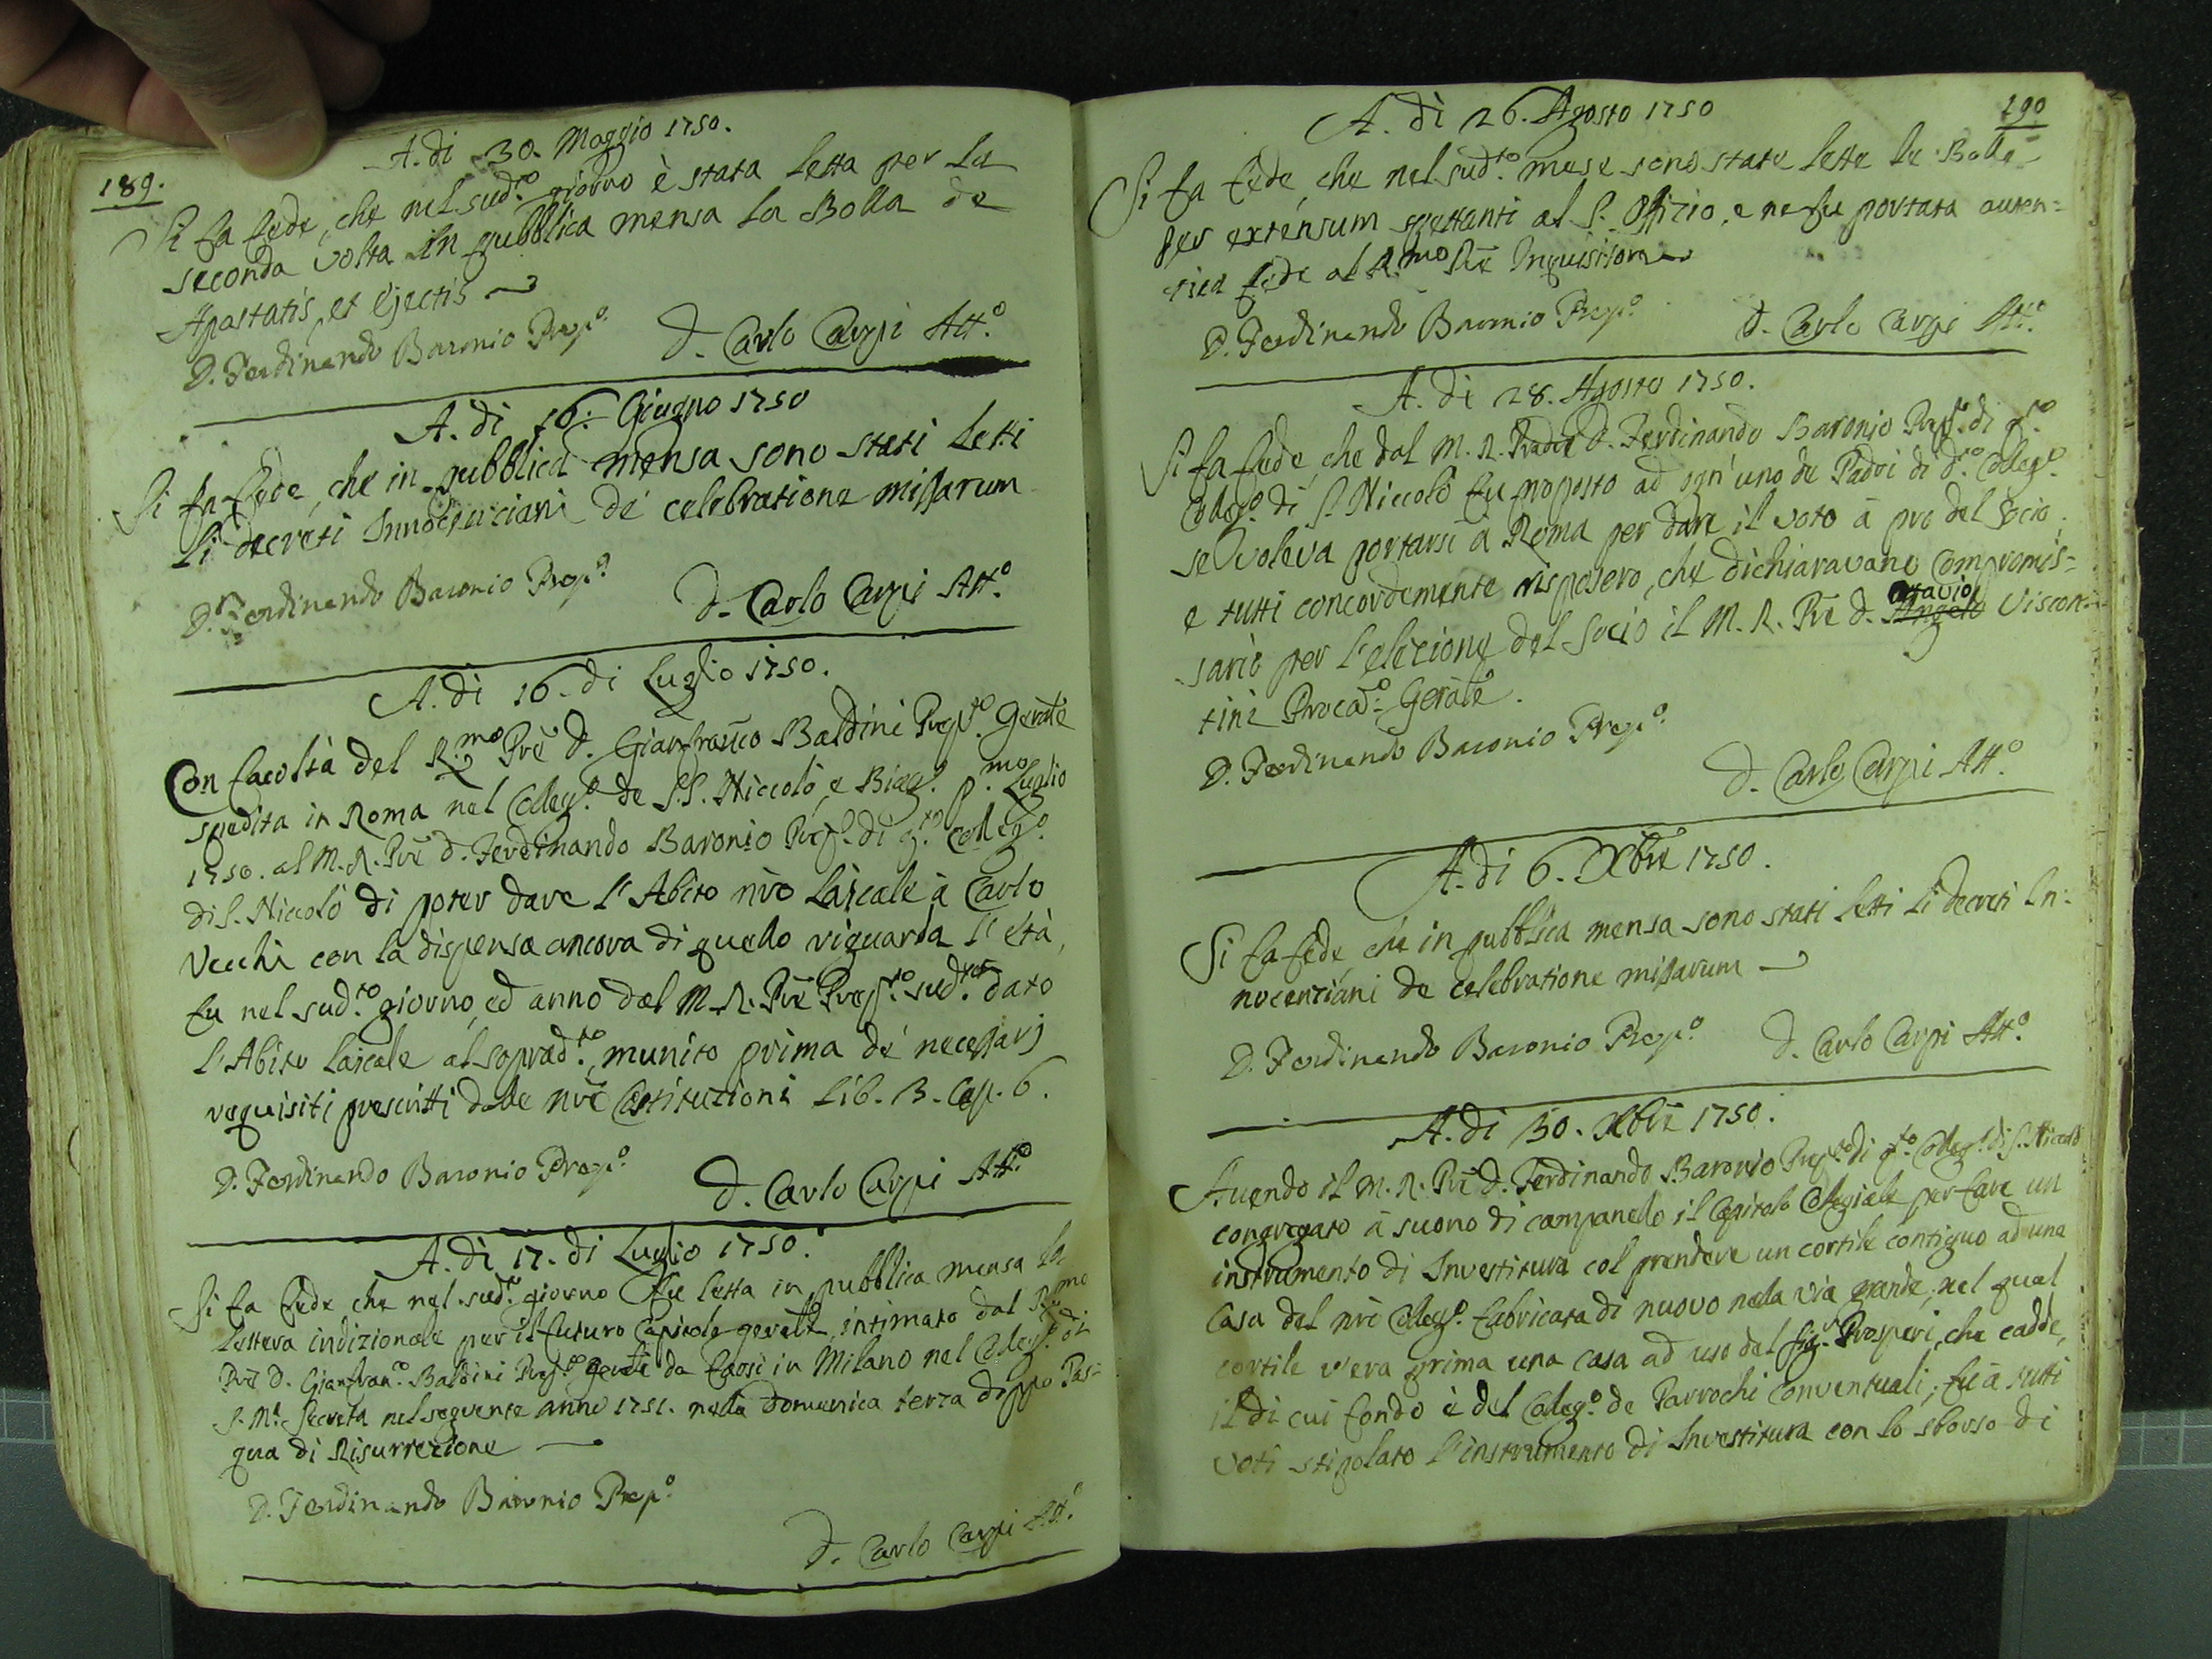 189.
A. di 30. Maggio 1750.
Si fa fede, che nel sud.to giorno è stata letta per la
seconda volta in pubblica mensa la Bolla de
Apostatis, et Ejectis
D. Ferdinando Baronio Prep.o
D. Carlo Carpi Att.o
A. di 16. Giugno 1750
Si fa fede, che in pubblica mensa sono stati letti
li decreti Innocenciani de celebratione missarum
D. Ferdinando Baronio Prep.o
D. Carlo Carpi Att.o
A. di 16. di Luglio 1750.
Con facoltà del R.mo Prē D. Gianfranco Baldini Prep.to Gerāle
spedita in Roma nel Colleg.o de S.S. Niccolò, e Biag.o p.mo Luglio
1750. al M. R. Prē D. Ferdinando Baronio Prep.o di q.to Colleg.o
di S. Niccolò di poter dare l'Abito nr̄o laicale à Carlo
Vecchi con la dispensa ancora di quello riguarda l'età,
fu nel sud.to giorno, ed anno dal M. R. Prē Prep.to sud.to dato
l'Abito laicale al soprad.to, munito prima de' necessarj
requisiti prescritti dalle nrē Costituzioni Lib. 3. Cap. 6.
D. Ferdinando Baronio Prep.o
D. Carlo Carpi Att.o
A. di 17. di Luglio 1750.
Si fa fede che nel sud.o giorno fu letta in pubblica mensa la
lettera indizionale per il futuro Capitolo gerāle, intimato dal R.mo
Prē D. Gianfran.co Baldini Prep.to gerāle da farsi in Milano nel Colleg.o di
S. M.a Secreta nel seguente anno 1751. nella Domenica terza doppo Pas-
qua di Risurrezione
D. Ferdinando Baronio Prep.o
D. Carlo Carpi Att.o
190
A. di 26. Agosto 1750
Si fa fede, che nel sud.to mese sono state lette le Bolle
per extensum spettanti al S. Offizio, e ne fu portata auten=
tica fede al R.mo Prē Inquisitore
D. Ferdinando Baronio Prep.o
D. Carlo Carpi Att.o
A. di 28. Agosto 1750.
Si fa fede, che dal M. R. Padre D. Ferdinando Baronio Prep.to di q.to
Colleg.o di S. Niccolò fu proposto ad ogn'uno de Padri di d.to Colleg.o
se voleva portarsi à Roma per dare il voto à pro del Socio,
e tutti concordemente risposero, che dichiaravano Compromis=
sario per l'elezione del Socio il M. R. Prē D. Angelo Ottavio Viscon-
tini Procā.o Gerāle.
D. Ferdinando Baronio Prep.o
D. Carlo Carpi Att.o
A. di 6. Xbrē 1750.
Si fa fede, che in pubblica mensa sono stati letti li decreti In=
nocenziani de celebratione missarum
D. Ferdinando Baronio Prep.o
D. Carlo Carpi Att.o
A. di 30. Xbrē 1750.
Avendo il M. R. Prē D. Ferdinando Baronio Prep.to di q.to Colleg.o di S. Niccolò
congregato à suono di campanello il Capitolo Collegiale per fare un
instrumento di Investitura col prendere un cortile contiguo ad una
Casa del nrō Colleg.o fabricata di nuovo nella via grande, nel qual
cortile v'era prima una casa ad uso del Sig.r Prosperi, che cadde,
il di cui fondo è del Colleg.o de Parrochi Conventuali; fu à tutti
voti stipolato l'instrumento di Investitura con lo sborso di